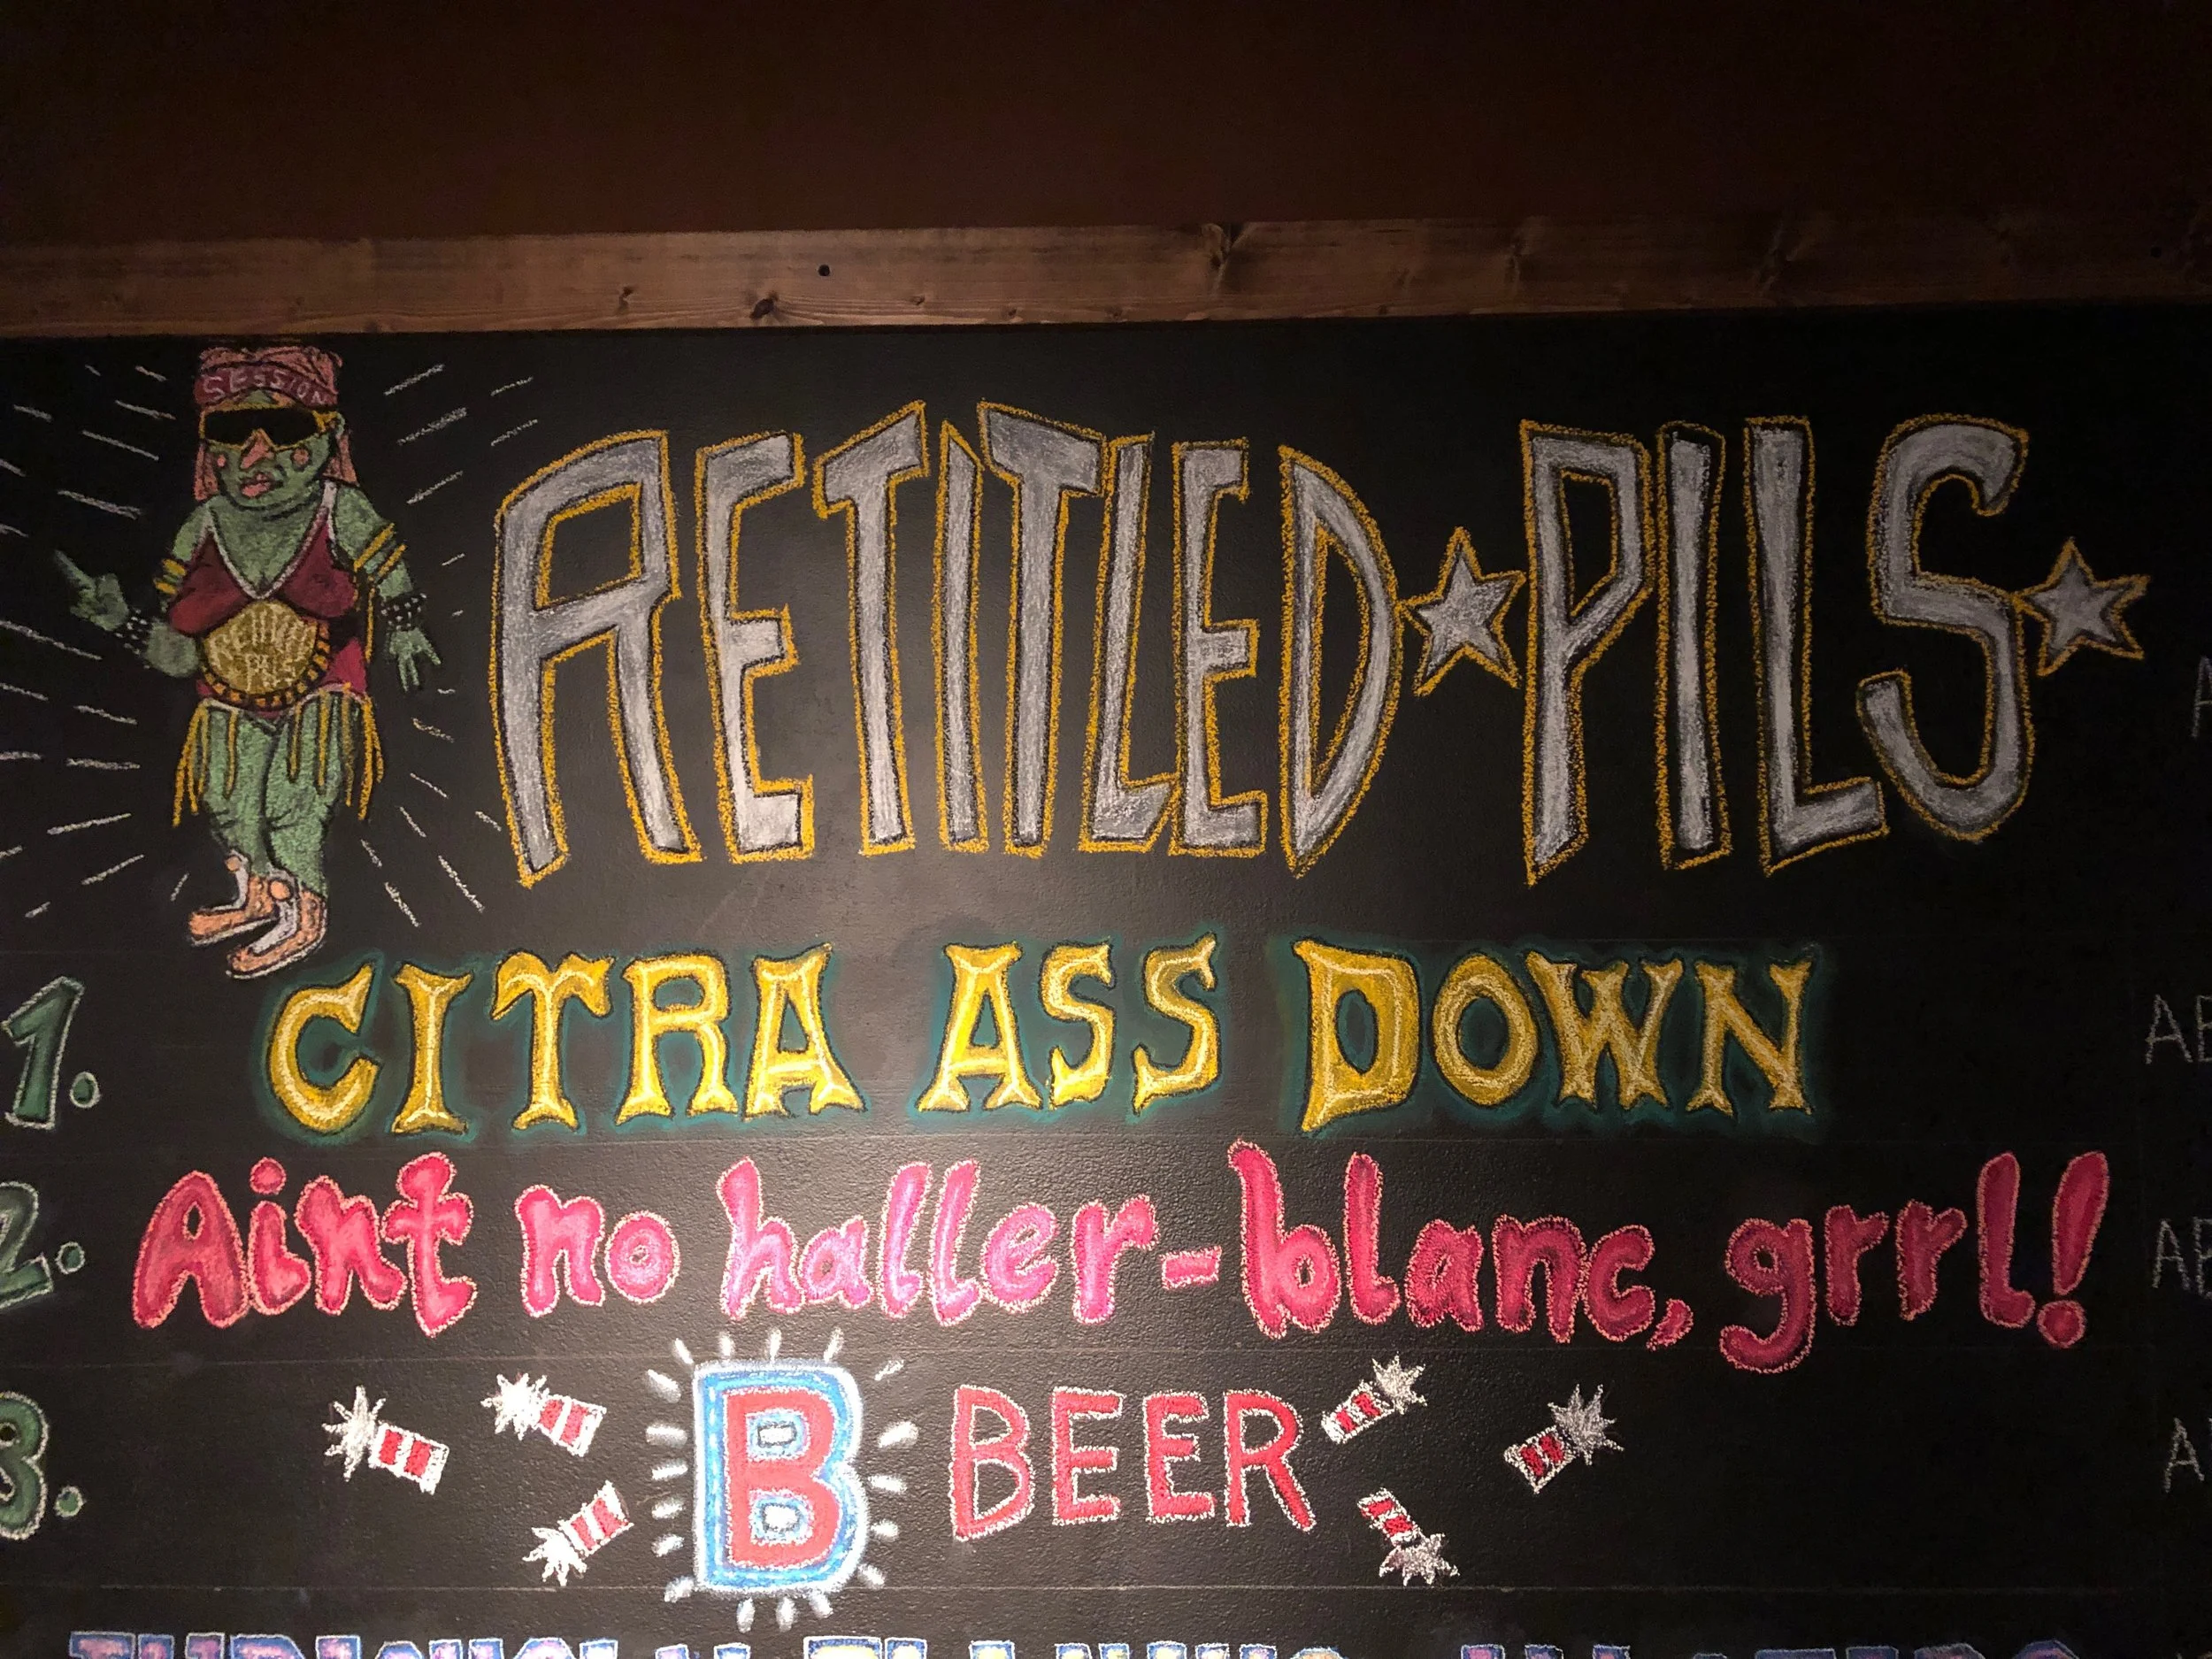 SESSION
RETITLED PILS
RETITLED PILS
1. CITRA ASS DOWN
2. Aint no haller-blanc, grrl!
3. B BEER